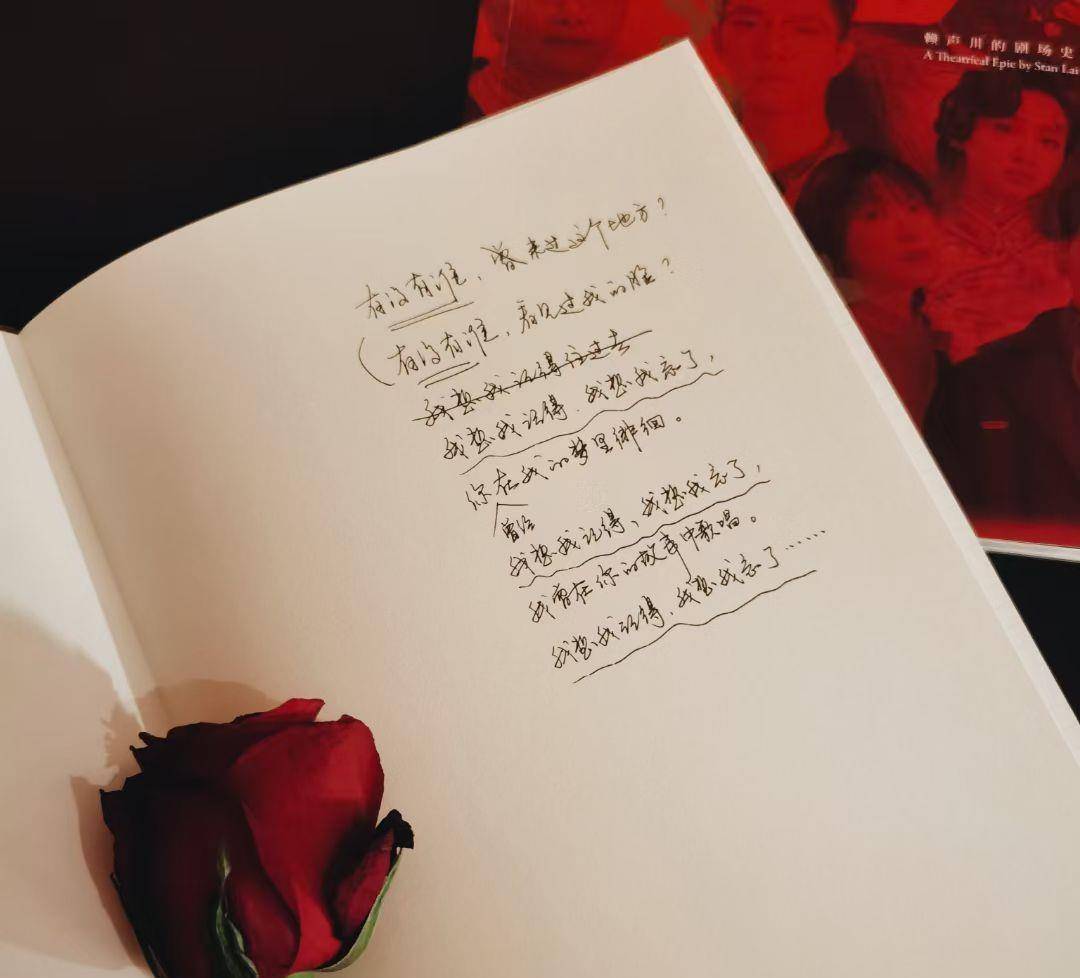 赖声川的剧场史
A Theatrical Epic by Stan Lai
有没有谁，曾来过这个地方？
（有没有谁，看见过我的脸？
我想我记得住过去
我想我记得，我想我忘了，
你在我的梦里徘徊。
曾经
我想我记得，我想我忘了，
我曾在你的故事中歌唱。
我想我记得，我想我忘了……